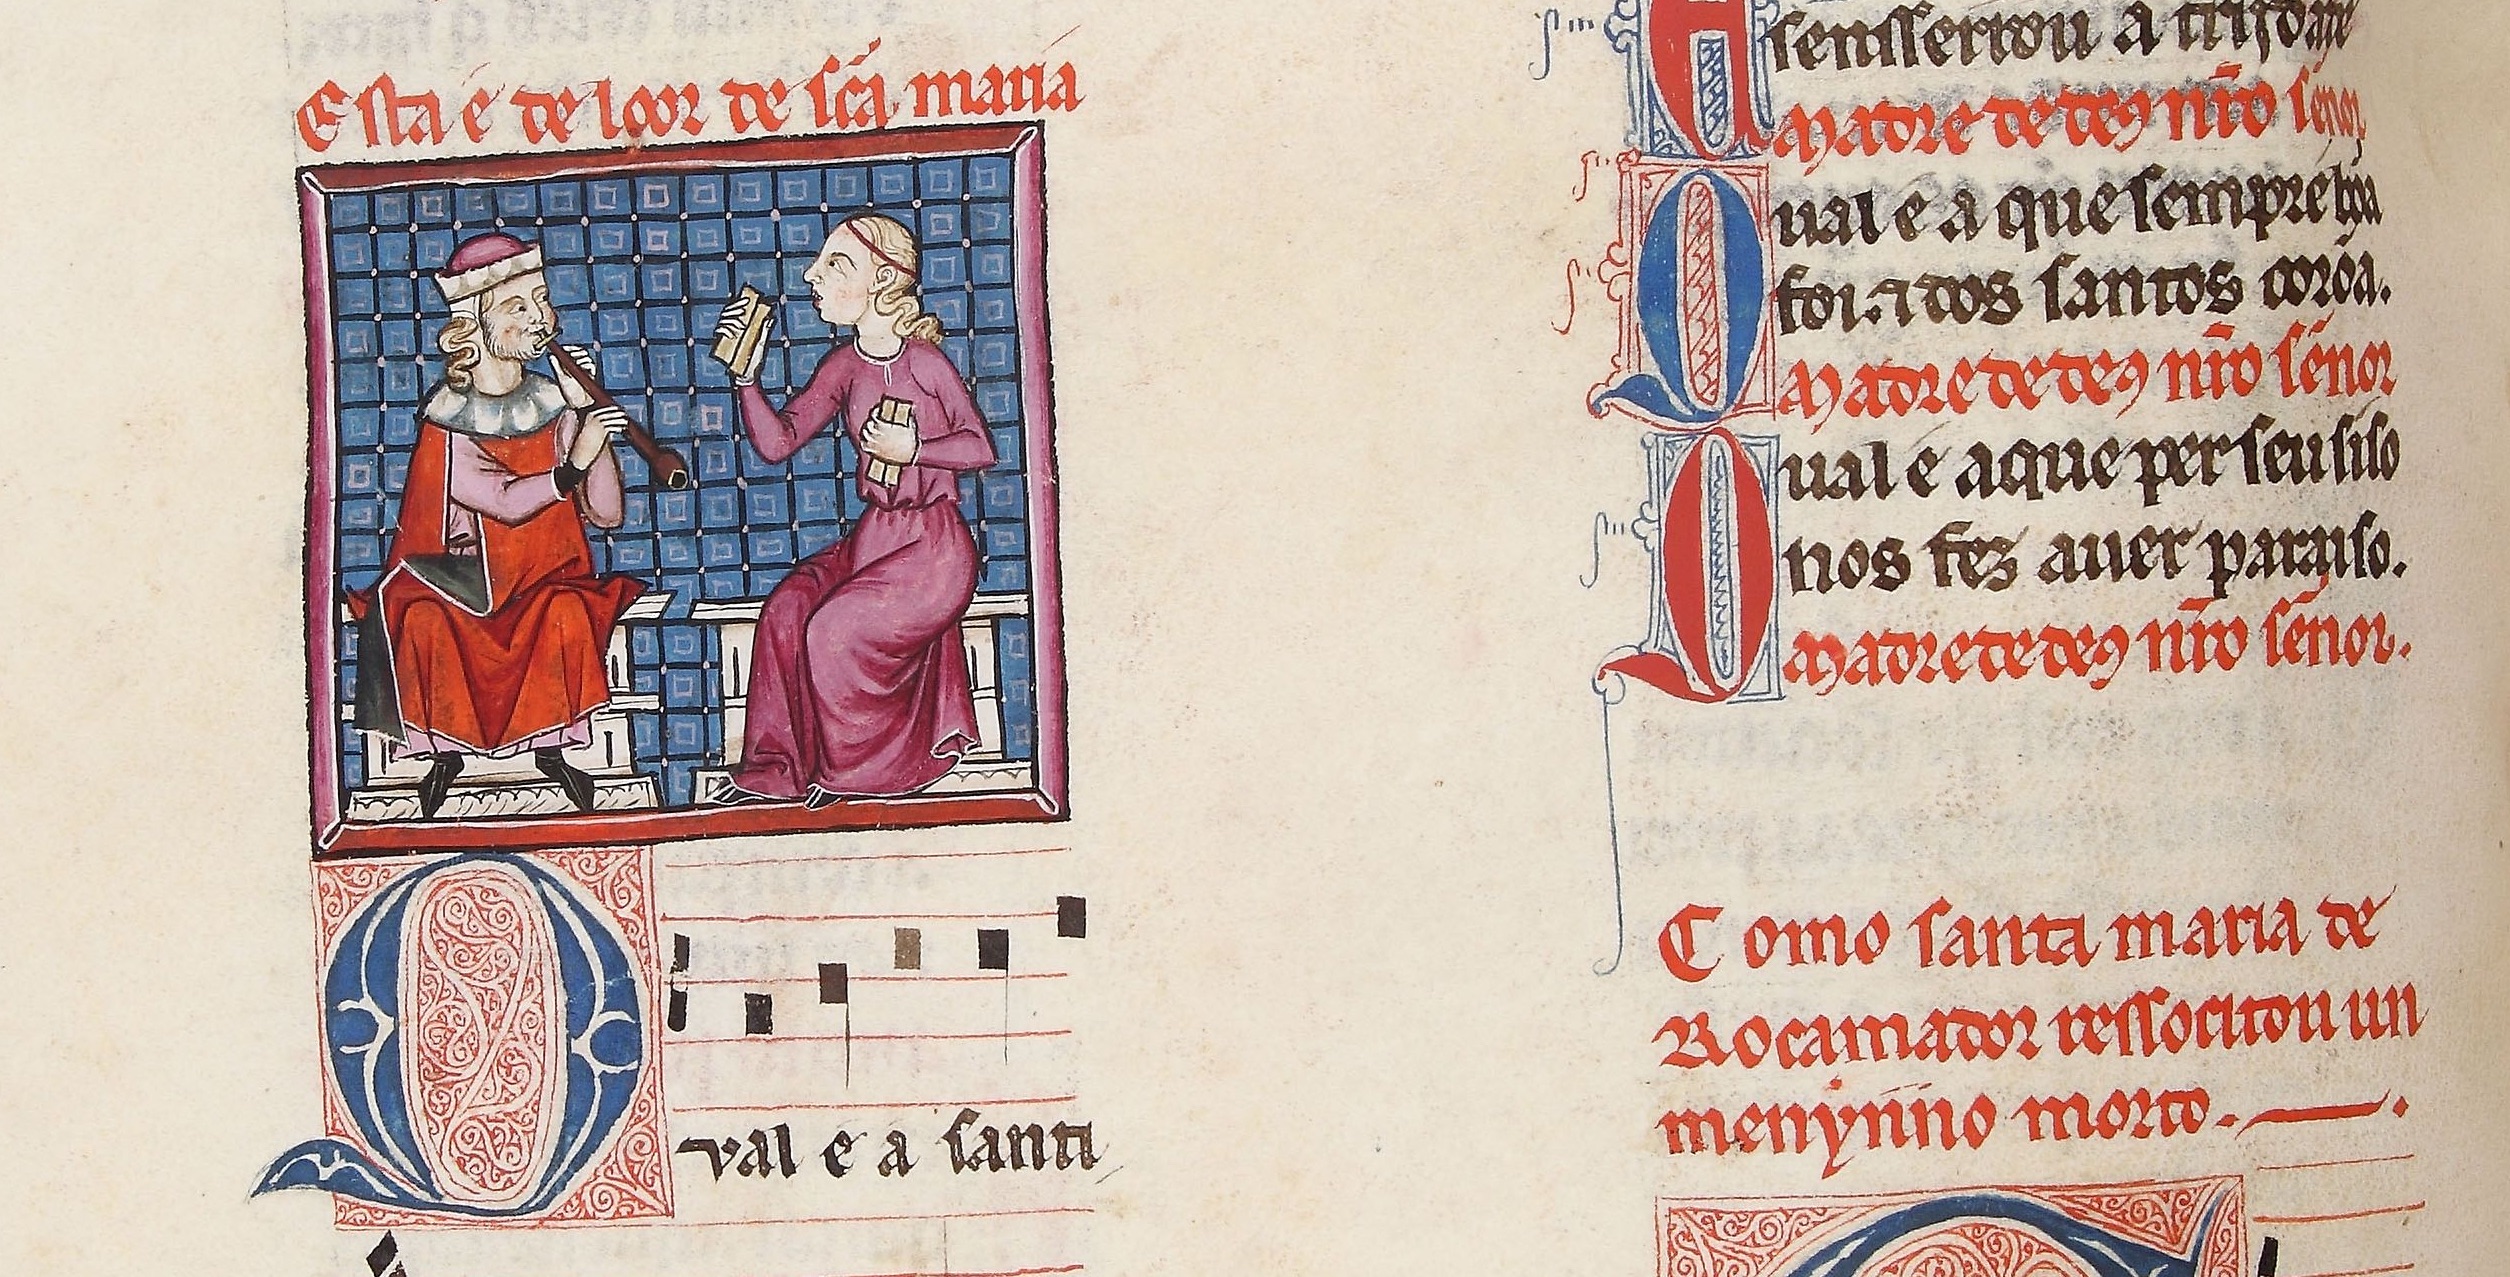 Esta é de loor de scã maria
Qual e a santi
A
senss errou a trijdade
Madre de deus nr̃o sẽnor
Qual e a que sempre bõa
foi. ⁊ dos santos corõa.
Madre de deus nr̃o sẽnor
Qual é aque per seu siso
nos fez auer parayso.
Madre de deus nr̃o sẽnor.
Como santa maria de
Rocamador ressocitou un
menynno morto.